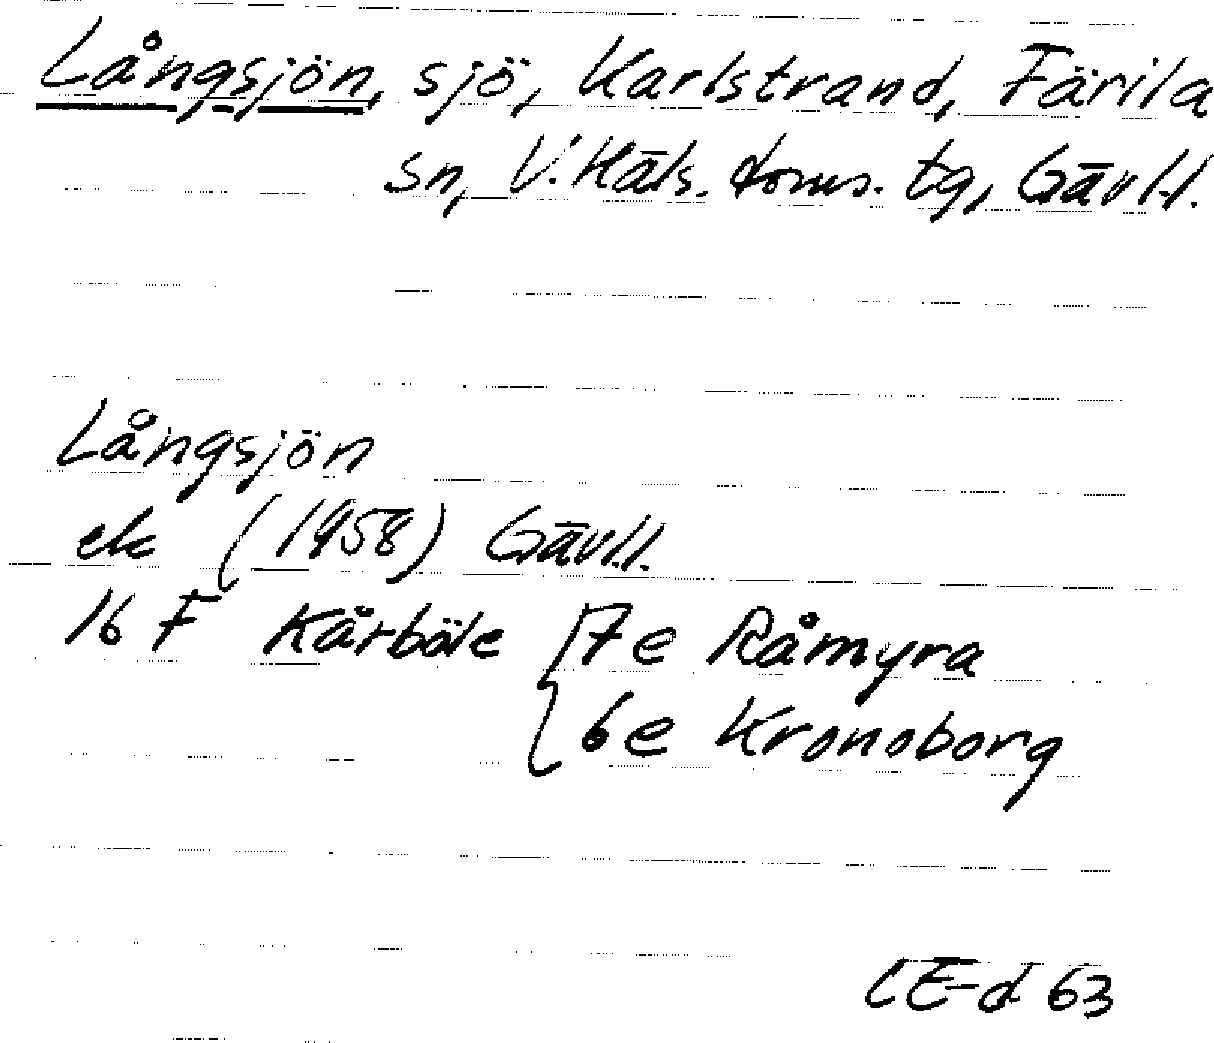 Långsjön, sjö, Karlstrand, Färila
sn, V. Häls. doms. tg, Gävl.l.
Långsjön
ek (1958) Gävl.l.
16 F Kårböle 7e Råmyra
6e Kronoborg
CE-d 63